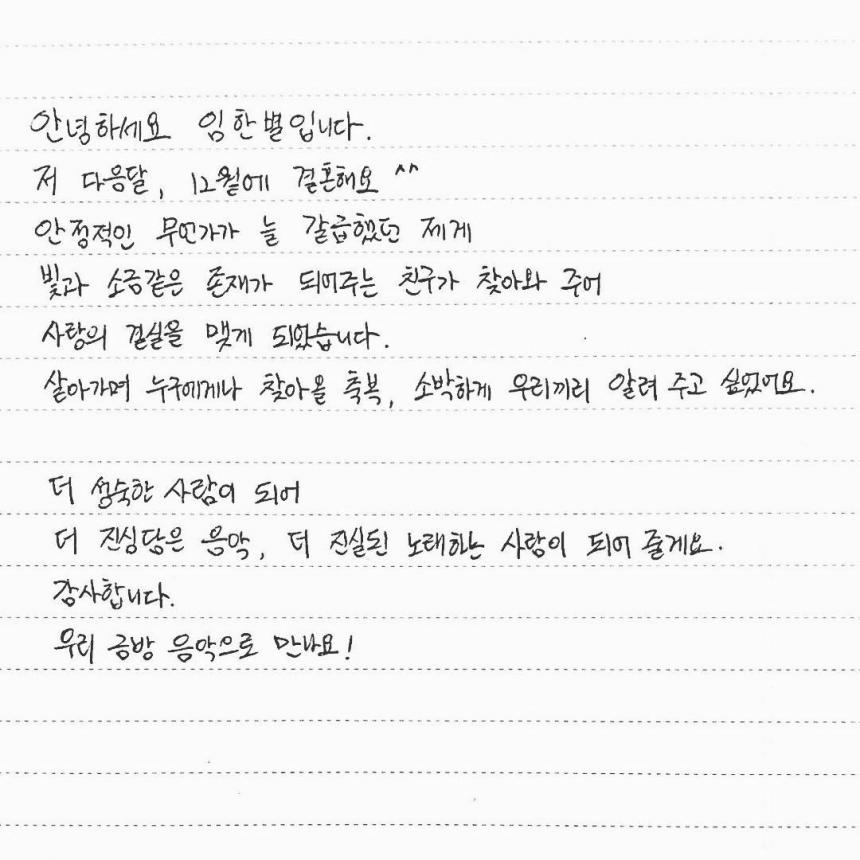 안녕하세요 임한별입니다.
저 다음달, 12월에 결혼해요 ^^
안정적인 무언가가 늘 갈급했던 제게
빛과 소금같은 존재가 되어주는 친구가 찾아와 주어
사랑의 결실을 맺게 되었습니다.
살아가며 누구에게나 찾아올 축복, 소박하게 우리끼리 알려 주고 싶었어요.
더 성숙한 사람이 되어
더 진심담은 음악, 더 진실된 노래하는 사람이 되어 줄게요.
감사합니다.
우리 금방 음악으로 만나요!